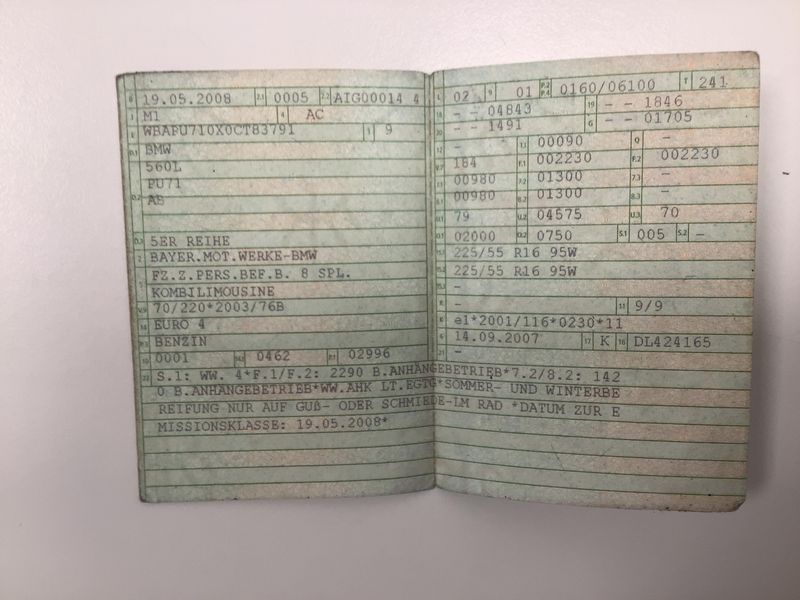 B 19.05.2008 2.1 0005 2.2 AIG00014 4
J M1 4 AC
E WBAPU710X0CT83791 3 9
D.1 BMW
560L
PU71
D.2 A8
D.3 5ER REIHE
2 BAYER.MOT.WERKE-BMW
5 FZ.Z.PERS.BEF.B. 8 SPL.
KOMBILIMOUSINE
V.9 70/220*2003/76B
14 EURO 4
P.3 BENZIN
10 0001 14.1 0462 P.1 02996
22 S.1: WW. 4*F.1/F.2: 2290 B.ANHÄNGEBETRIEB*7.2/8.2: 142
0 B.ANHÄNGEBETRIEB*WW.AHK LT.EGTG*SOMMER- UND WINTERBE
REIFUNG NUR AUF GUß- ODER SCHMIEDE-LM RAD *DATUM ZUR E
MISSIONSKLASSE: 19.05.2008*
L 02 9 01 P.2 P.4 0160/06100 T 241
18 - - 04843 19 - - 1846
20 - - 1491 G - - 01705
12 - 13 00090 Q -
V.7 184 F.1 002230 F.2 002230
7.1 00980 7.2 01300 7.3 -
8.1 00980 8.2 01300 8.3 -
U.1 79 U.2 04575 U.3 70
O.1 02000 O.2 0750 S.1 005 S.2 -
15.1 225/55 R16 95W
15.2 225/55 R16 95W
15.3 -
R - 11 9/9
K e1*2001/116*0230*11
6 14.09.2007 17 K 16 DL424165
21 -